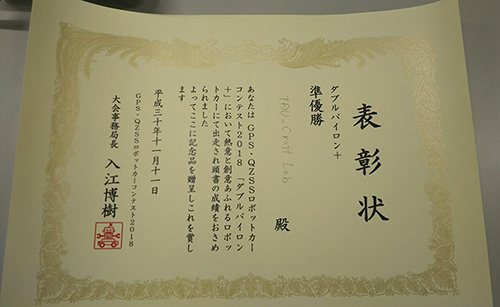 表彰状
ダブルパイロン+
準優勝
TDU-Craft Lab
殿
あなたは GPS・QZSSロボットカー
コンテスト2018 「ダブルパイロン
+」において熱意と創意あふれるロボッ
トカーにて出走され頭書の成績をおさめ
られました
よってここに記念品を贈呈しこれを賞し
ます
平成三十年十一月十一日
GPS・QZSSロボットカーコンテスト2018
大会事務局長 入江博樹